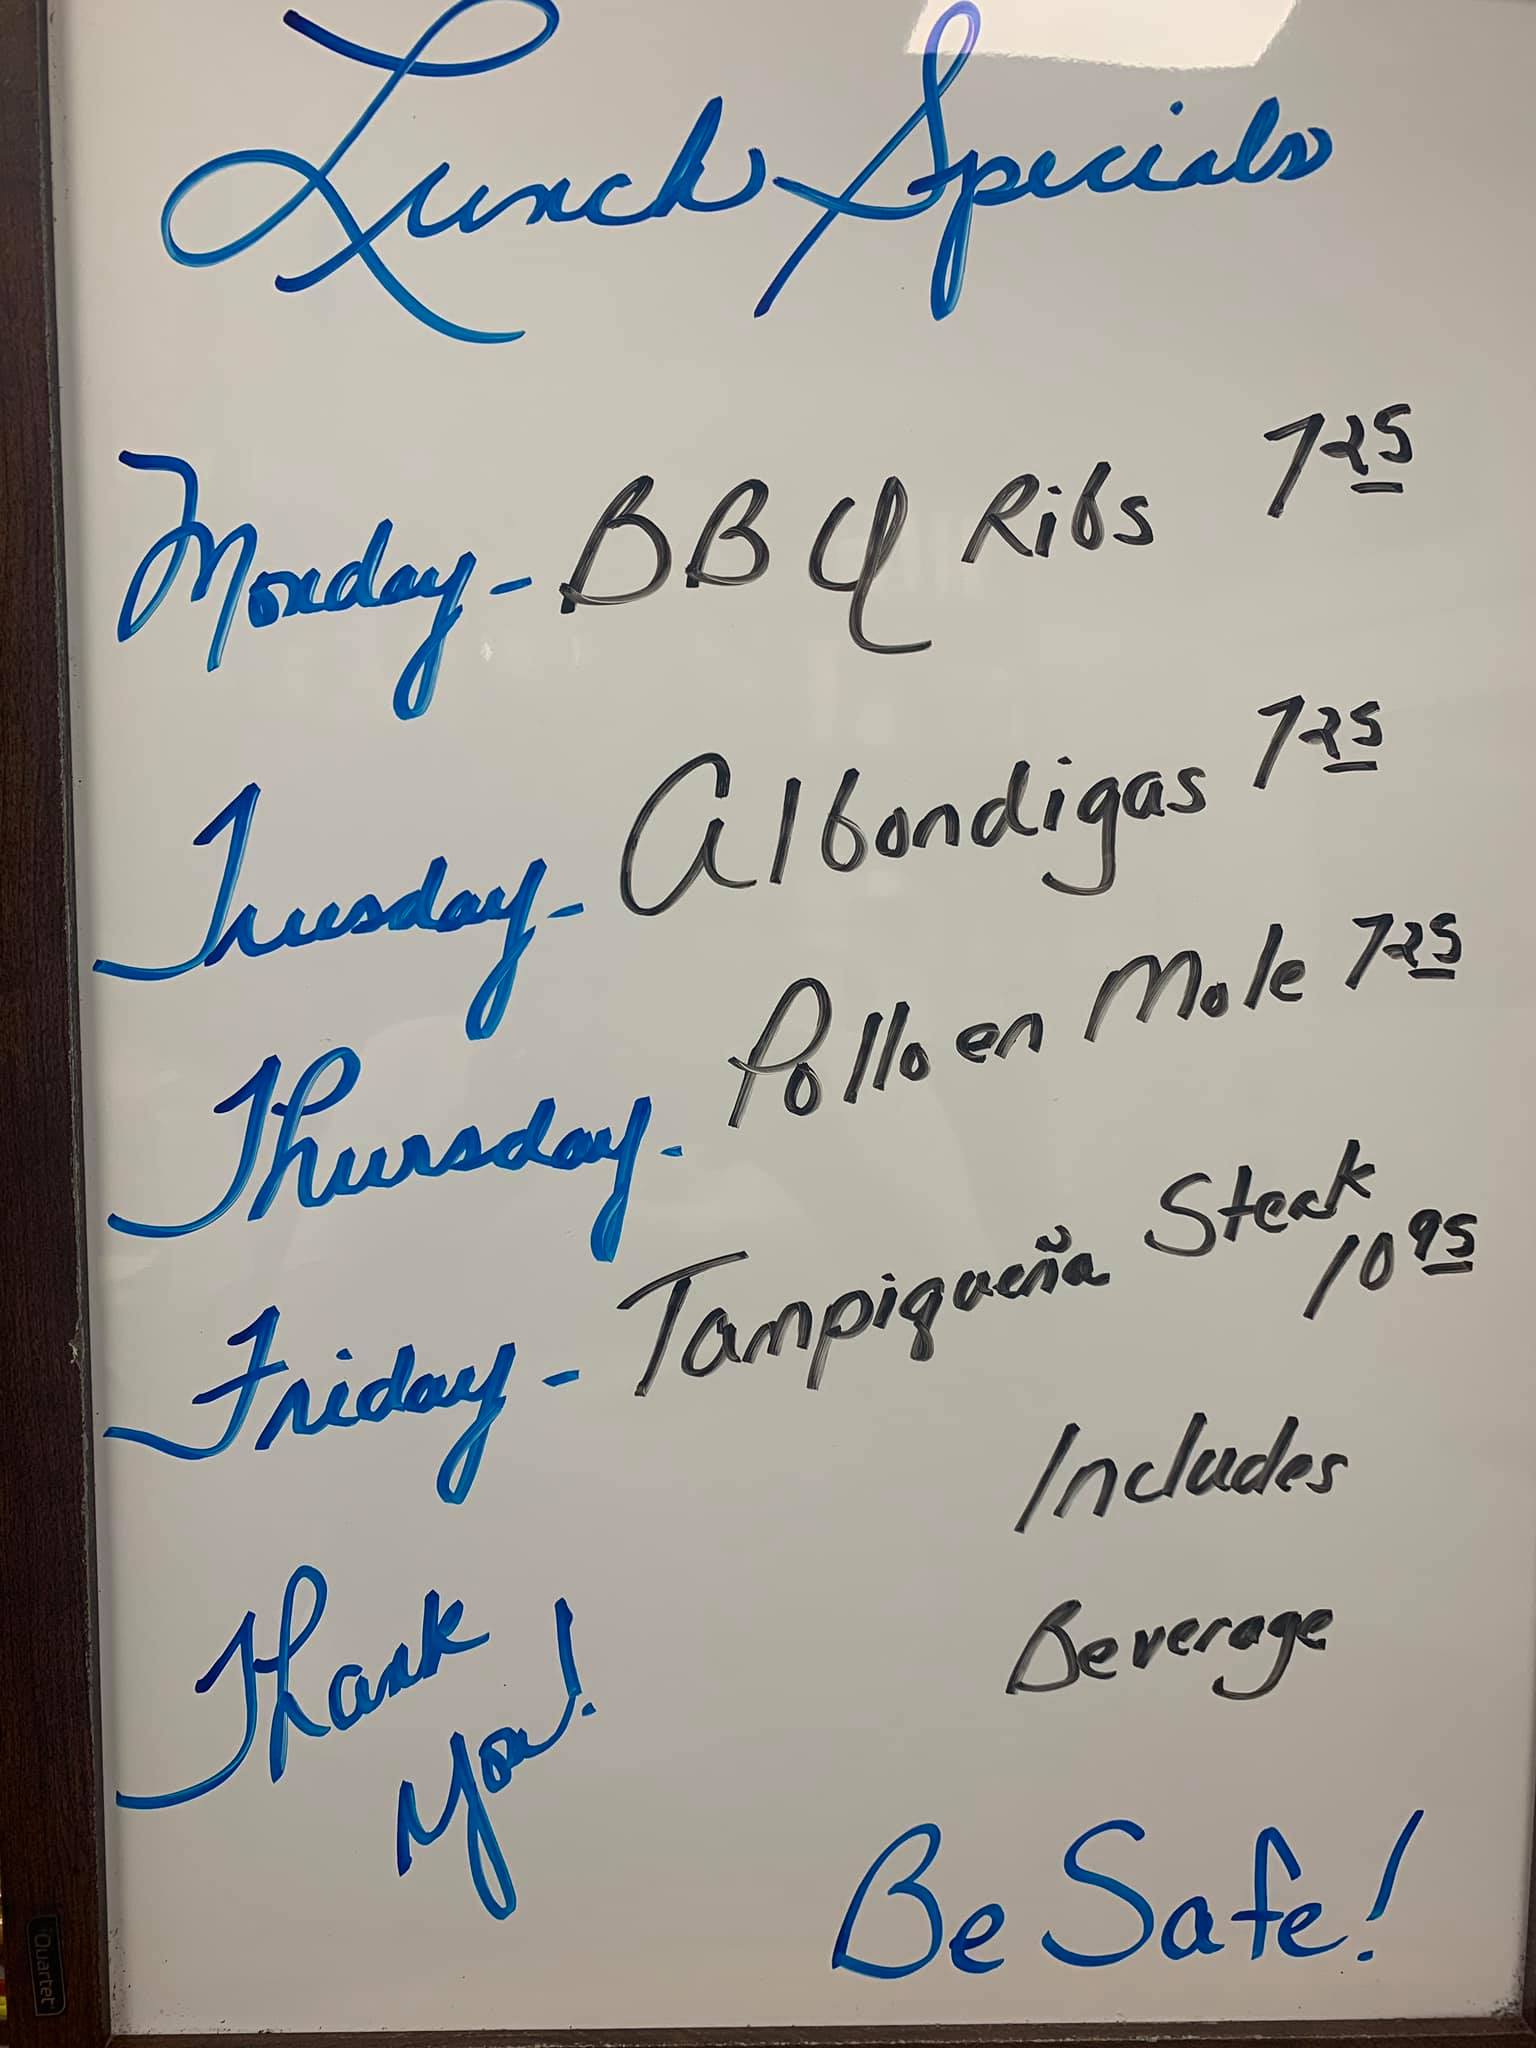 Lunch Specials
Monday - BBQ Ribs 7.25
Tuesday - Albondigas 7.25
Thursday - Pollo en Mole 7.25
Friday - Tampiqueña Steak
10.95
Includes
Beverage
Thank
you!
Be Safe!
Quartet